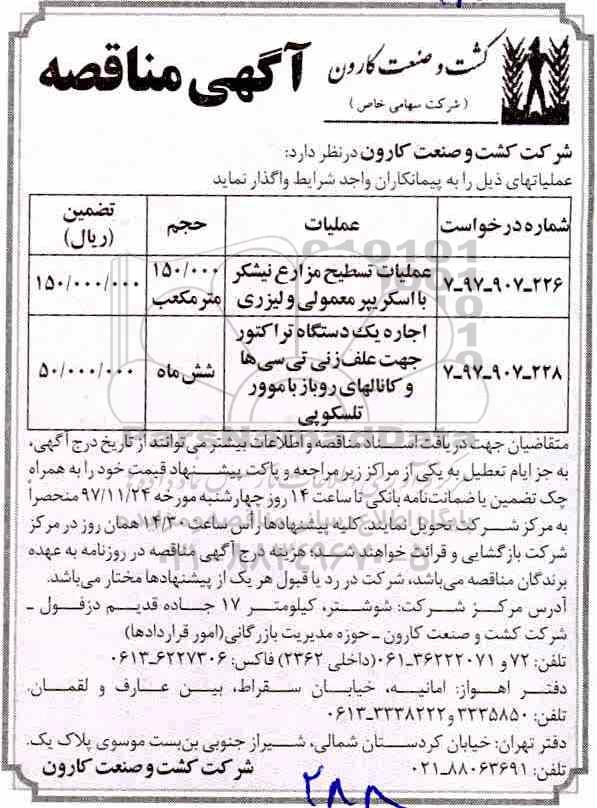 کشت و صنعت کارون
( شرکت سهامی خاص )
آگهی مناقصه
شرکت کشت و صنعت کارون درنظر دارد:
عملیاتهای ذیل را به پیمانکاران واجد شرایط واگذار نماید
شماره درخواست عملیات حجم تضمین (ریال)
۷-۹۷-۹۰۷-۲۲۶ عملیات تسطیح مزارع نیشکر ۱۵۰/۰۰۰ ۱۵۰/۰۰۰/۰۰۰
با اسکریپر معمولی و لیزری مترمکعب
۷-۹۷-۹۰۷-۲۲۸ اجاره یک دستگاه تراکتور شش ماه ۵۰/۰۰۰/۰۰۰
جهت علف زنی تی سی ها
و کانالهای روباز با موور
تلسکوپی
متقاضیان جهت دریافت اسناد مناقصه و اطلاعات بیشتر می توانند از تاریخ درج آگهی،
به جز ایام تعطیل به یکی از مراکز زیر مراجعه و پاکت پیشنهاد قیمت خود را به همراه
چک تضمین یا ضمانت نامه بانکی تا ساعت ۱۴ روز چهارشنبه مورخه ۹۷/۱۱/۲۴ منحصراً
به مرکز شرکت تحویل نمایند. کلیه پیشنهادها رأس ساعت ۱۴/۳۰ همان روز در مرکز
شرکت بازگشایی و قرائت خواهند شد؛ هزینه درج آگهی مناقصه در روزنامه به عهده
برندگان مناقصه می باشد، شرکت در رد یا قبول هر یک از پیشنهادها مختار می باشد.
آدرس مرکز شرکت: شوشتر، کیلومتر ۱۷ جاده قدیم دزفول -
شرکت کشت و صنعت کارون - حوزه مدیریت بازرگانی (امور قراردادها)
تلفن: ۷۲ و ۳۶۲۲۲۰۷۱-۰۶۱ (داخلی ۲۳۶۲) فاکس: ۶۲۲۷۳۰۶-۰۶۱۳
دفتر اهواز: امانیه، خیابان سقراط، بین عارف و لقمان.
تلفن: ۳۳۳۵۸۵۰ و ۳۳۳۸۲۲۲-۰۶۱۳
دفتر تهران: خیابان کردستان شمالی، شیراز جنوبی بن بست موسوی پلاک یک.
تلفن: ۸۸۰۶۳۶۹۱-۰۲۱
شرکت کشت و صنعت کارون
۲۸۸